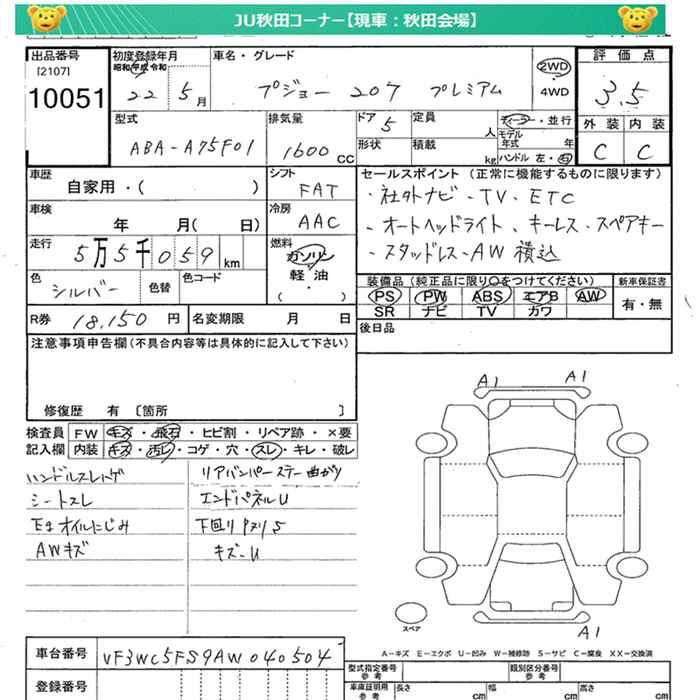 JU秋田コーナー【現車：秋田会場】
出品番号
[2107]
10051
初度登録年月
昭和 平成 令和
22 5月
車名・グレード
プジョー 207 プレミアム
2WD
4WD
評価点
3.5
外装 内装
C C
型式
ABA-A75F01
排気量
1600 CC
ドア 5
形状
定員 人
積載 kg
ディーラー・並行
モデル年式 年
ハンドル 左・右
車歴
自家用・( )
シフト
FAT
車検
年 月( 日)
冷房
AAC
走行
5万5千059km
燃料
ガソリン
軽・油
( ・ )
色
シルバー
色替
色コード
R券 18,150円
名変期限 月 日
セールスポイント(正常に機能するものに限ります)
・社外ナビ・TV・ETC
・オートヘッドライト、キーレス、スペアキー
・スタッドレス・AW積込
装備品(純正品に限り○をつけてください)
PS PW ABS エアB AW
SR ナビ TV カワ
新車保証書
有・無
後日品
注意事項申告欄(不具合内容等は具体的に記入して下さい)
修復歴 有 〔箇所 〕
検査員記入欄
FW キズ・飛石・ヒビ割・リペア跡・×要
内装 キズ・汚レ・コゲ・穴・スレ・キレ・破レ
ハンドルスレハゲ
シートスレ
Egオイルにじみ
AWキズ
リアバンパーステー曲がり
エンドパネルU
下回りサヌリS
キズ-U
A1 A1
スペア
A1
A-キズ E-エクボ U-凹み W-補修跡 S-サビ C-腐食 XX-交換済
車台番号 VF3WC5FS9AW040504
登録番号
型式指定番号 参考
類別区分番号 参考
車庫証明用 参考
長さ cm
幅 cm
高さ cm